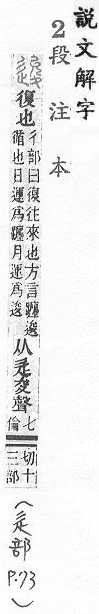 說文解字
2段注本
逡 復也 彳部曰復往來也方言躔逡循也日運爲躔月運爲逡 从辵夋聲 七倫切十三部 (辵部 P.73)